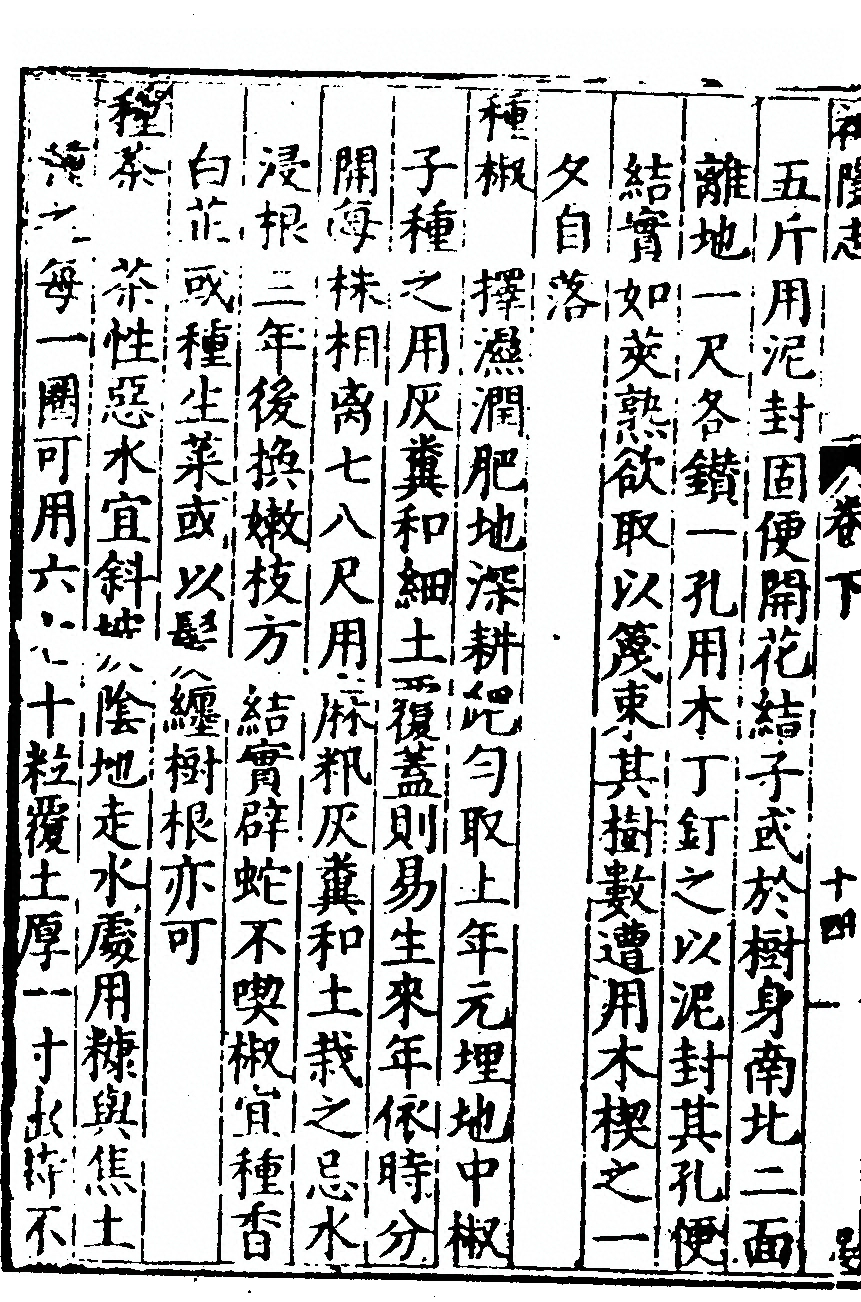 神隱志
卷下
十四
五斤用泥封固便開花結子或於樹身南北二面
離地一尺各鑚一孔用木丁釘之以泥封其孔便
結實如莢熟欲取以篾束其樹數遭用木楔之一
夕自落
種椒 擇濕潤肥地深耕耙勻取上年元埋地中椒
子種之用灰糞和細土覆蓋則易生來年依時分
開每株相离七八尺用麻籸灰糞和土栽之忌水
浸根二年後換嫩枝方結實辟蛇不喫椒宜種香
白芷或種生菜或以髮纏樹根亦可
種茶 茶性惡水宜斜坡陰地走水處用糠與焦土
種之每一圈可用六七十粒覆土厚一寸出時不